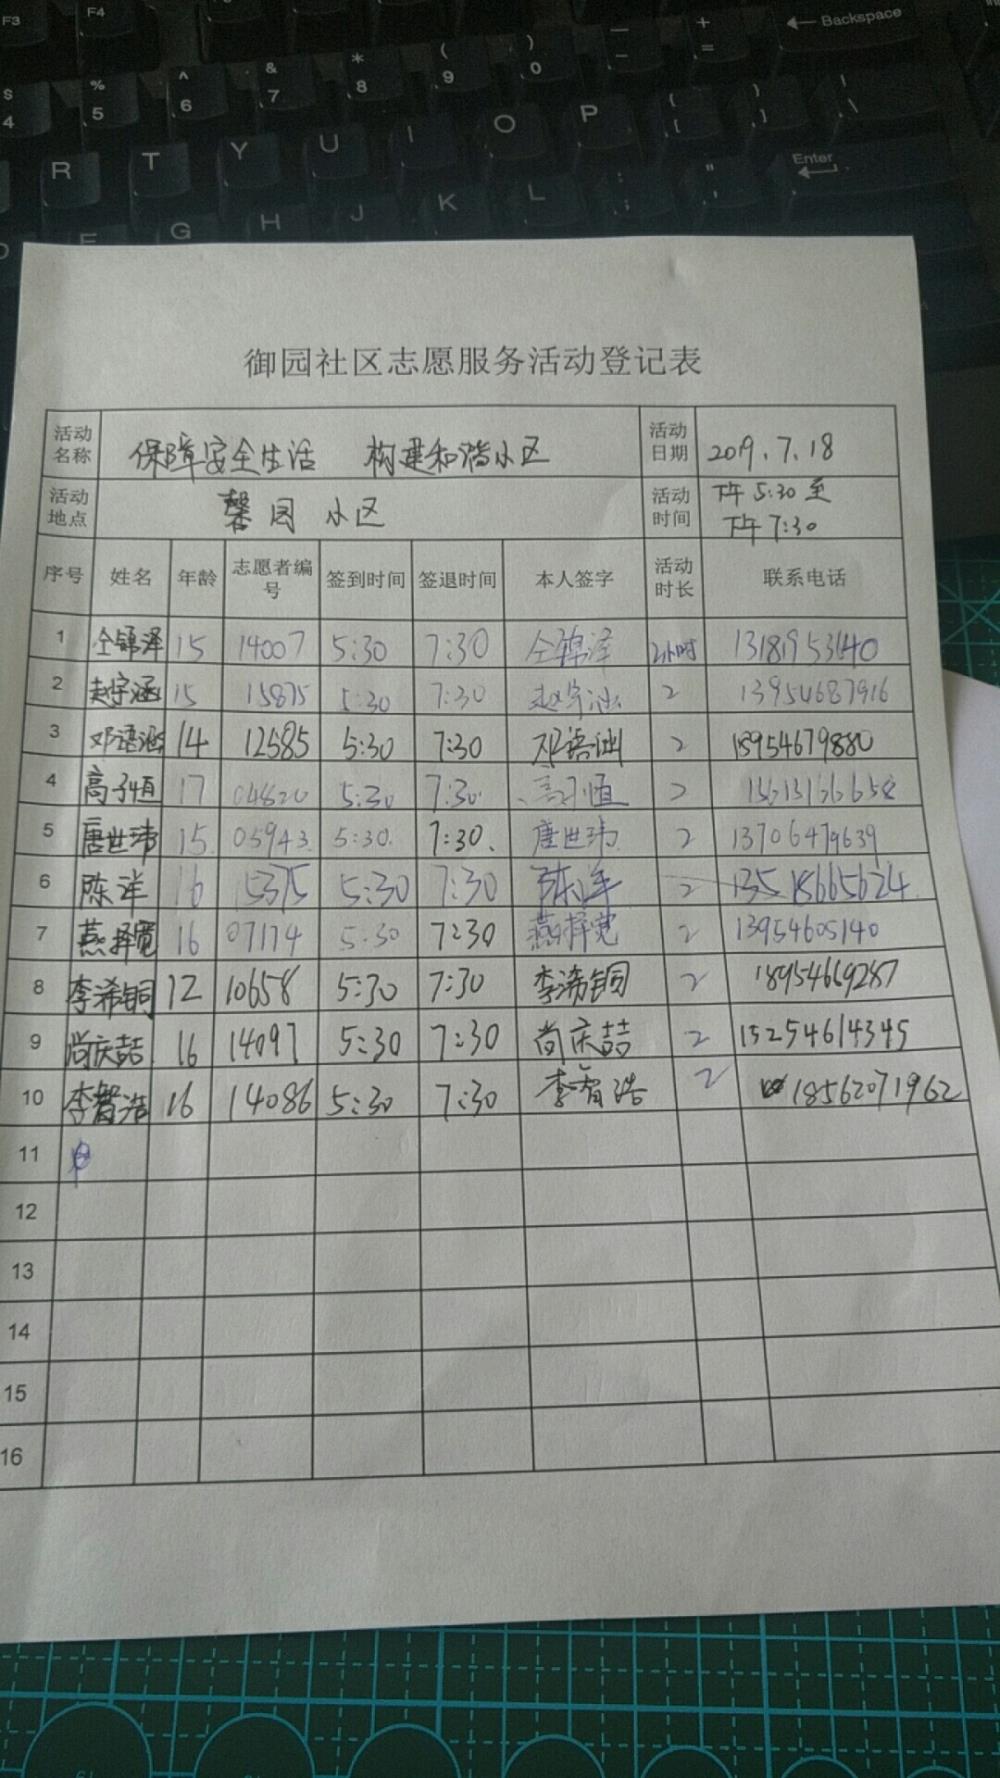 F3 F4 Backspace
$ 4 % 5 ^ 6 & 7 * 8 ( 9 ) 0 — + =
R T Y U I O P { [ } ] | \
Enter
D F G H J K L : ; " '
御园社区志愿服务活动登记表
活动名称 保障安全生活 构建和谐小区 活动日期 2019.7.18
活动地点 馨园 小区 活动时间 下午5:30至下午7:30
序号 姓名 年龄 志愿者编号 签到时间 签退时间 本人签字 活动时长 联系电话
1 仝锦泽 15 14007 5:30 7:30 仝锦泽 2小时 13181953140
2 赵宇涵 15 15875 5:30 7:30 赵宇涵 2 13954687916
3 邓语涵 14 12585 5:30 7:30 邓语涵 2 18954679880
4 高子恒 17 04820 5:30 7:30 高子恒 2
5 唐世玮 15 05943 5:30 7:30 唐世玮 2 13706479639
6 陈洋 16 15375 5:30 7:30 陈洋 2 13518665624
7 燕择宽 16 07174 5:30 7:30 燕择宽 2 13954605140
8 李浠铜 12 10658 5:30 7:30 李浠铜 2 18954669287
9 尚庆喆 16 14097 5:30 7:30 尚庆喆 2 15254614345
10 李智浩 16 14086 5:30 7:30 李智浩 2 18562071962
11
12
13
14
15
16